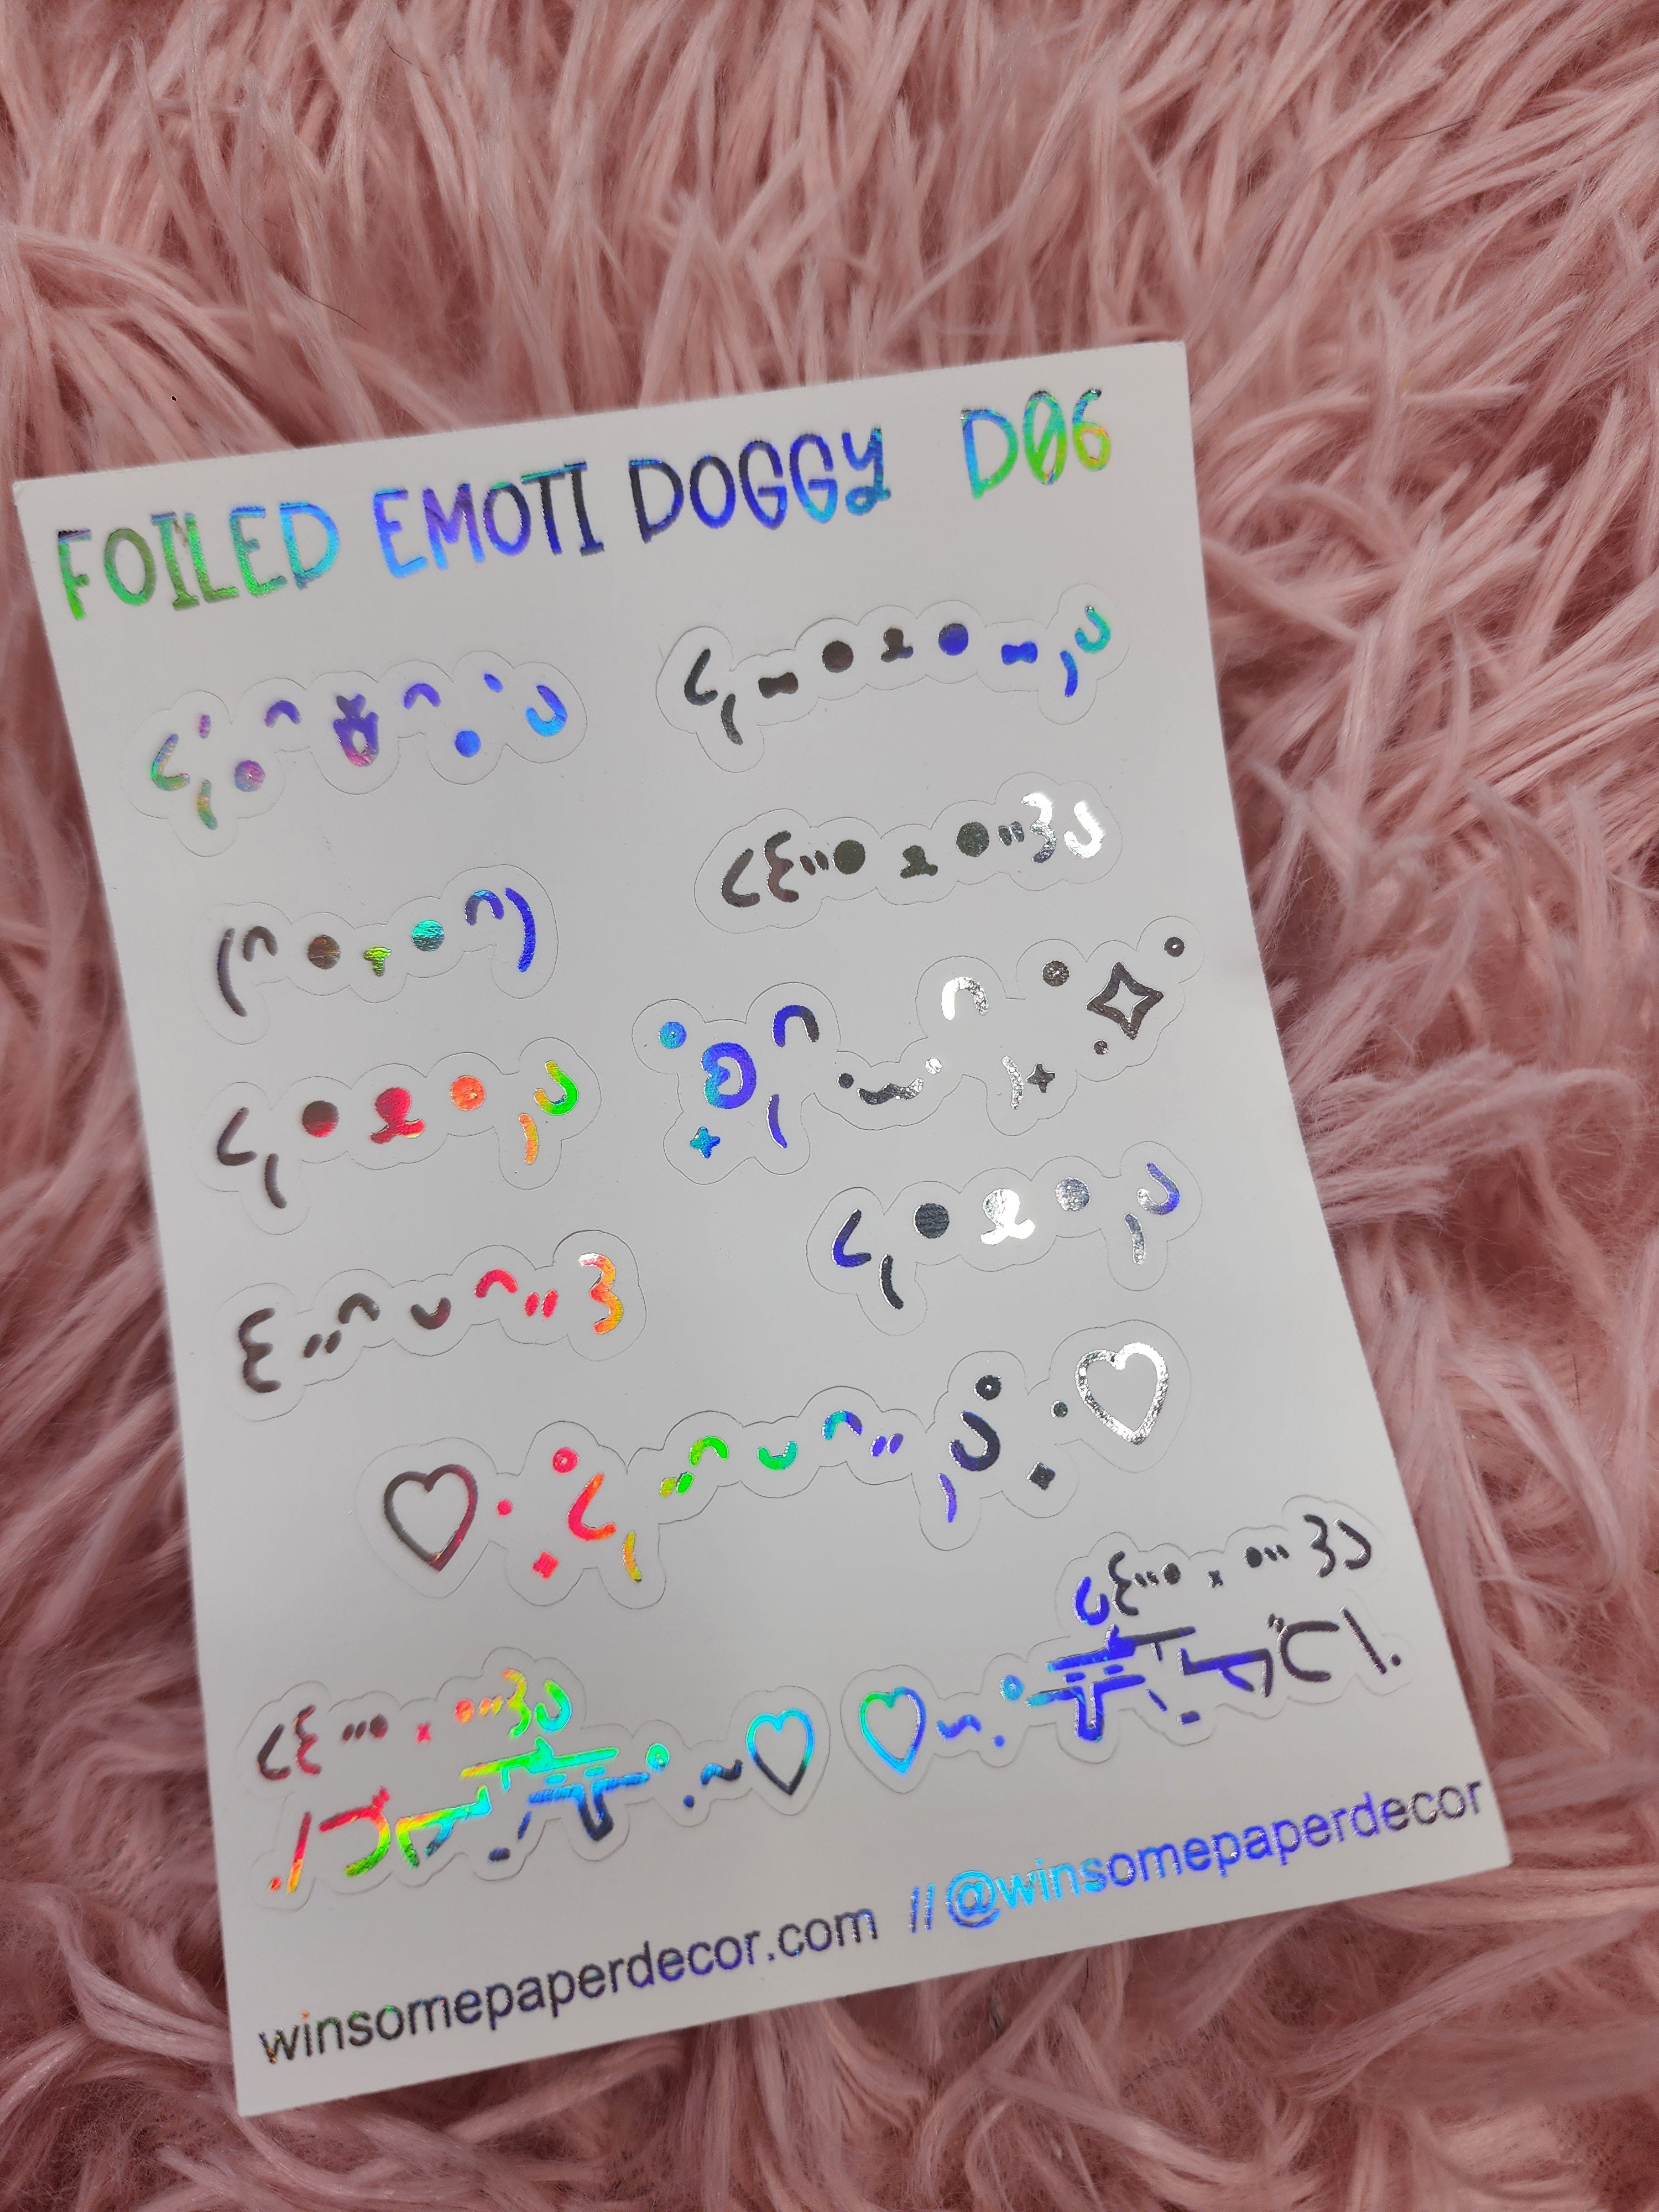 FOILED EMOTI DOGGY D06
winsomepaperdecor.com //@winsomepaperdecor